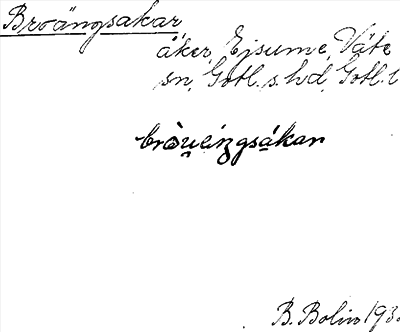 Broängsakar
åker, Ejsume, Väte
sn, Gotl. s. hd, Gotl. l
B. Bolin 193